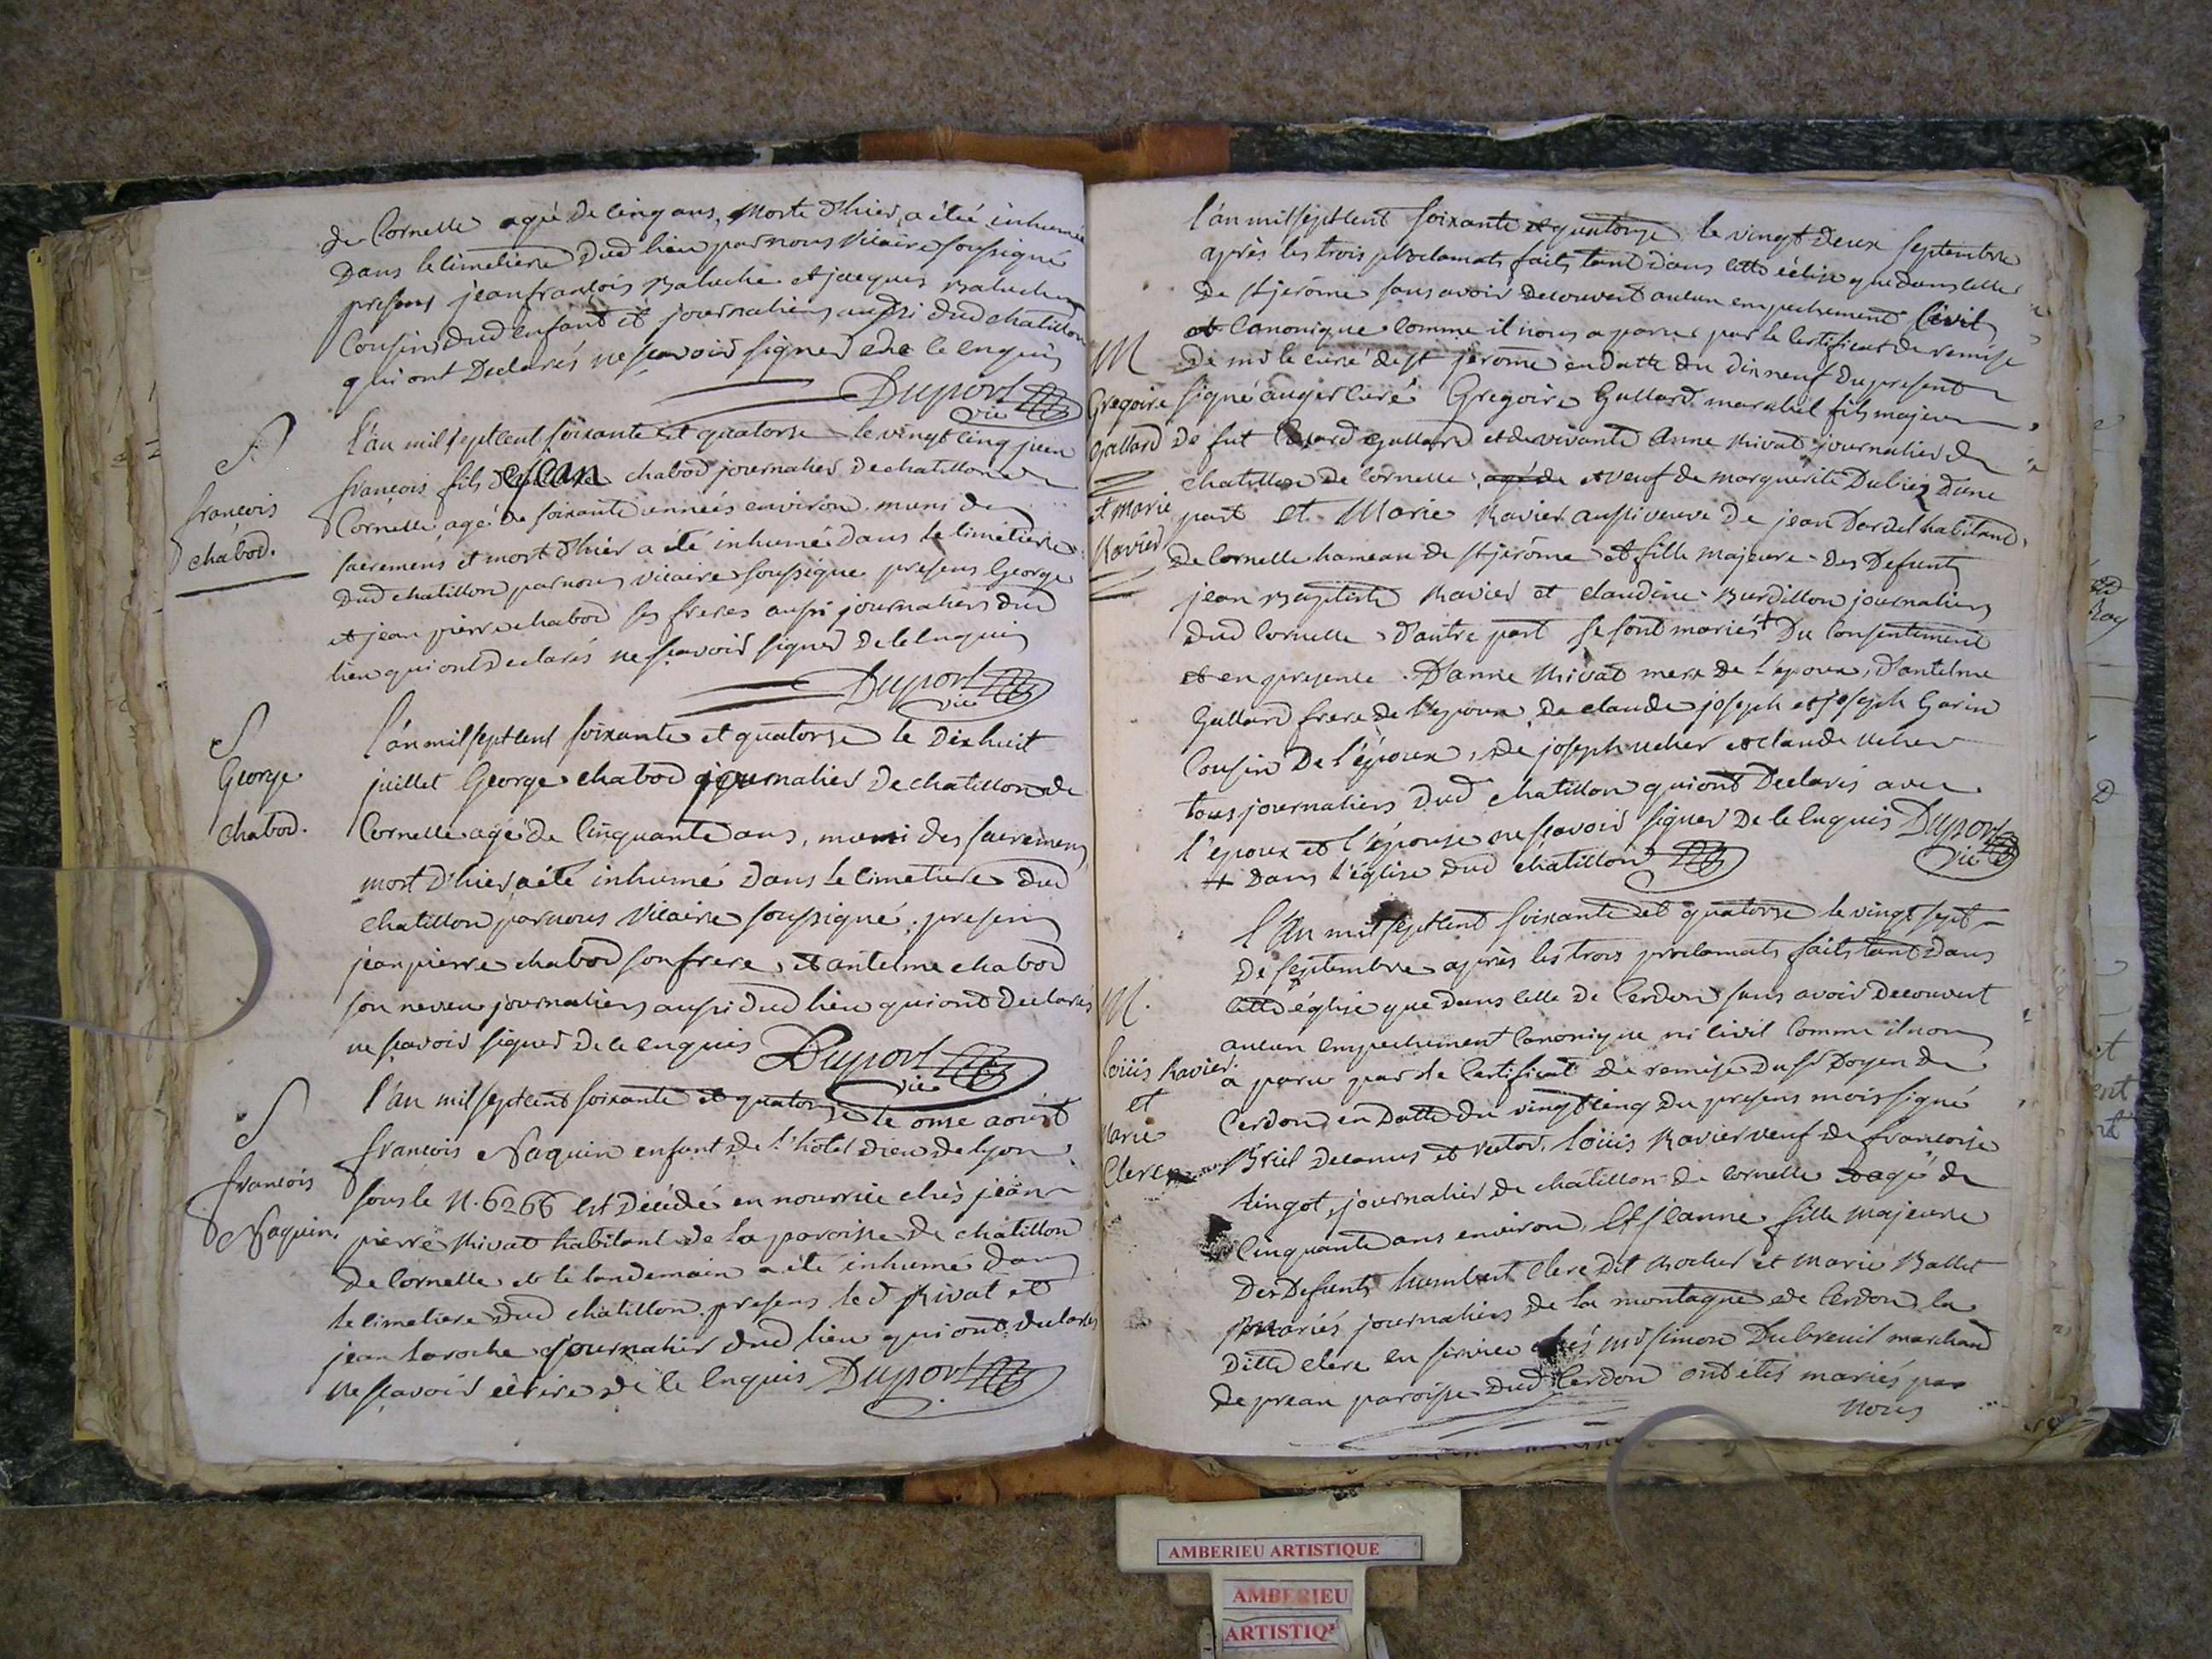 de Cornelle agé de cinq ans, morte d'hier, a été inhumée
dans le cimetiere dud lieu par nous vicaire soussigné
presens jean françois Baluche et jacques Baluche
cousins dud enfant et journaliers aussi dud chatillon
qui ont declarés ne sçavoir signer de ce enquis
Duport
vic
S
françois
chabod.
l'an mil sept cent soixante et quatorse le vingt cinq juin
françois fils de jean chabod journalier de chatillon de
Cornelle, agé de soixante années environ muni des
sacremens et mort d'hier a été inhumé dans le cimetiere
dud chatillon par nous vicaire soussigné presens George
et jean pierre chabod ses freres aussi journaliers dud
lieu qui ont declarés ne sçavoir signer de ce enquis
Duport
vic
S
George
chabod.
l'an mil sept cent soixante et quatorse le dix huit
juillet George chabod journalier de chatillon de
Cornelle agé de cinquante ans, muni des sacremens
mort d'hier, a été inhumé dans le cimetiere dud
chatillon par nous vicaire soussigné; presens
jean pierre chabod son frere, et antelme chabod
son neveu journaliers aussi dud lieu qui ont declarés
ne sçavoir signer de ce enquis Duport
vic
S
françois
Naquin.
l'an mil sept cent soixante et quatorse le onse aoust
françois Naquin enfant de l'hotel dieu de lyon
sous le N. 6266 est décédé en nourrice chès jean
pierre Rivat habitant de la paroisse de chatillon
de Cornelle et le landemain a été inhumé dans
le cimetiere dud chatillon presens led Rivat et
jean laroche journalier dud lieu qui ont declarés
ne sçavoir écrire de ce enquis Duport
l'an mil sept cent soixante et quatorze le vingt deux septembre
après les trois proclamats faits tant dans cette église que dans celle
de st jerôme sans avoir decouvert aucun empechement civil
et canonique comme il nous a paru par le certificat de remise
de mr le curé de st jerôme en datte du dix neuf du present
signé auger curé Gregoire Gallard marechal fils majeur
de fut Gallard et de vivante anne Rivat journalier de
chatillon de Cornelle, agé de et veuf de marguerite Dubiez d'une
part et Marie Ravier aussi veuve de jean Dardel habitand
de Cornelle hameau de st jerôme et fille majeure des defunts
jean Baptiste Ravier et claudine Burdillon journaliers
dud Cornelle d'autre part se sont mariés + du consentement
et en presence d'anne Rivat mere de l'epoux, d'antelme
Gallard frere de l'epoux, de claude joseph et joseph Garin
cousin de l'époux, de joseph ucher et claude ucher
tous journaliers dud chatillon qui ont declarés avec
l'epoux et l'épouse ne sçavoir signer de ce enquis Duport
vic
+ dans l'église dud chatillon
M
Gregoire
Gallard
et marie
Ravier
l'an mil sept cent soixante et quatorse le vingt sept
de septembre après les trois proclamats faits tant dans
cette église que dans celle de Cerdon sans avoir decouvert
aucun empechement canonique ni civil comme il nous
a paru par le certificat de remise du sr Doyen de
Cerdon, en datte du vingt cinq du presens mois signé
Briel decanus et rector, loüis Ravier veuf de françoise
tingot, journalier de chatillon de Cornelle agé de
cinquante ans environ, Et jeanne fille majeure
des defunts humbert clerc dit Rocher et marie Ballet
mariés journaliers de la montagne de Cerdon, la
ditte clerc en service chés mr simon Dubreuil marchand
de preau paroisse dud Cerdon ont étés mariés par
nous
M.
loüis Ravier
et
Marie
Clerc
AMBERIEU ARTISTIQUE
AMBERIEU
ARTISTIQ